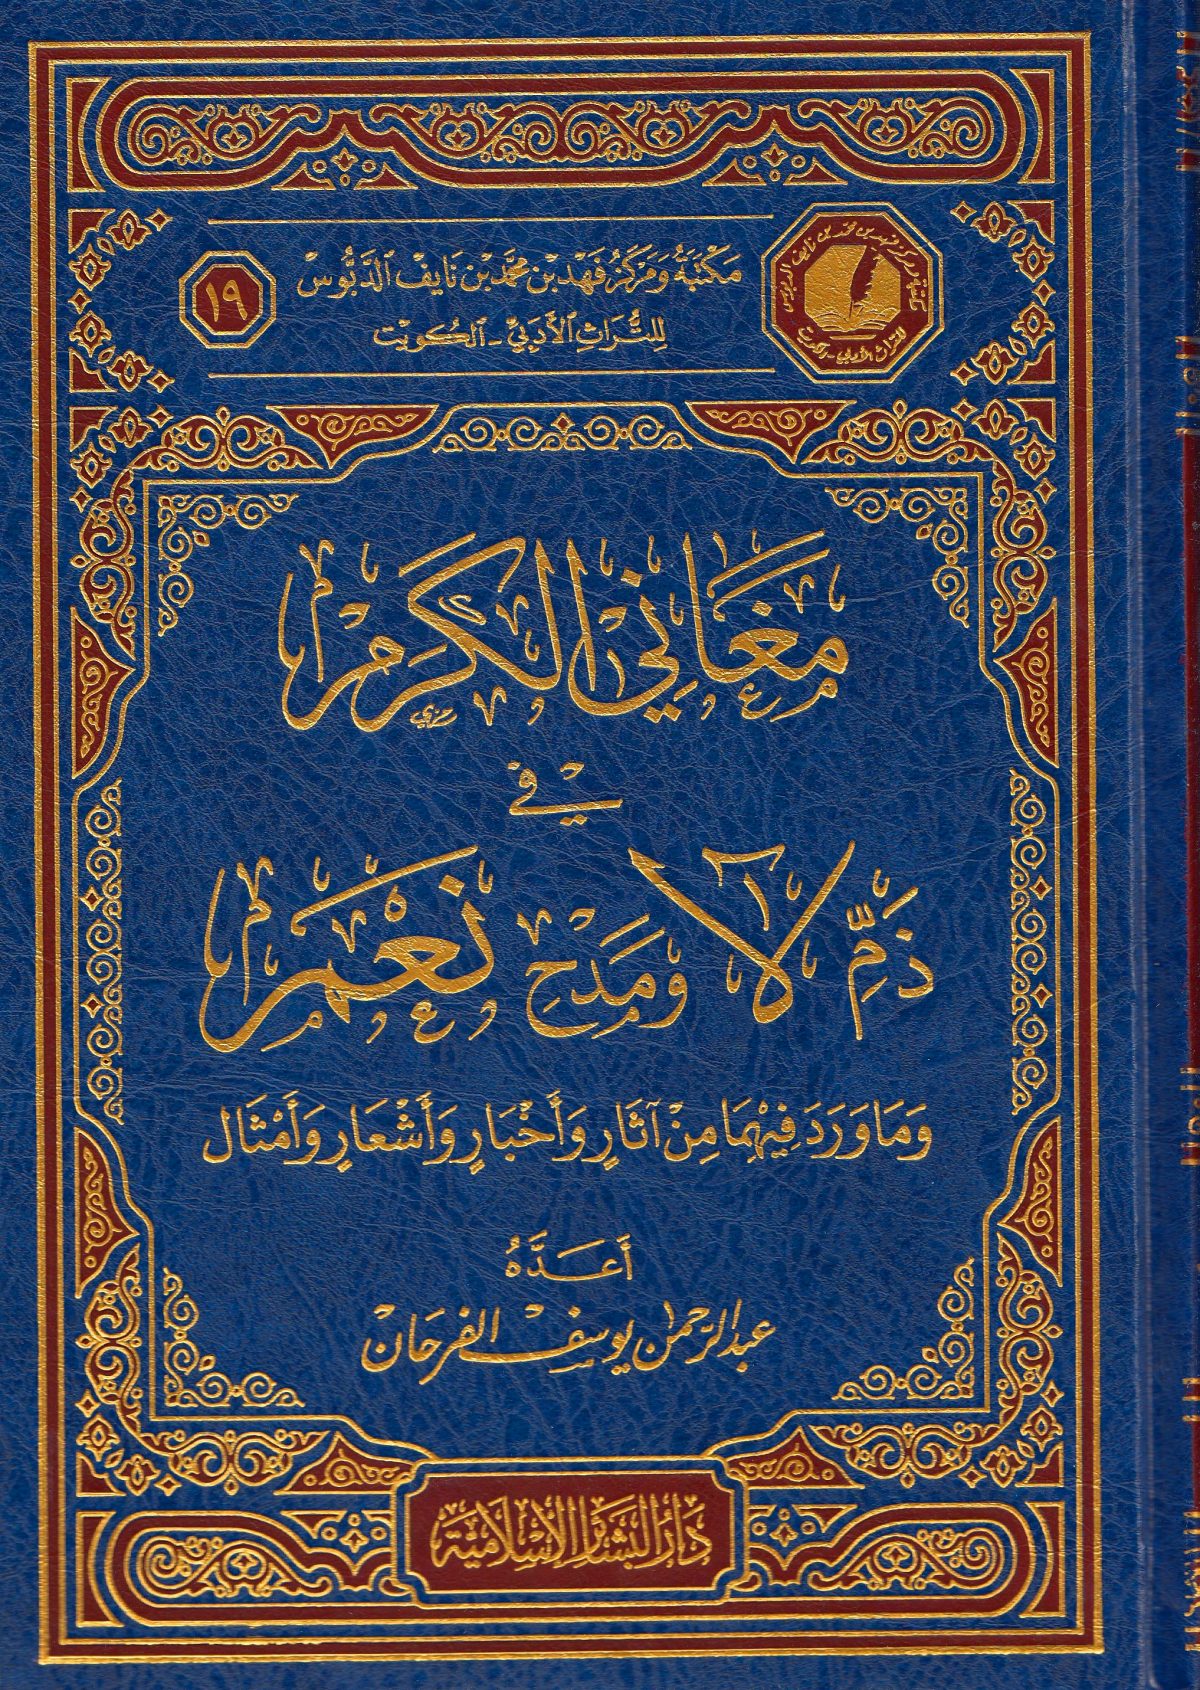 مَكْتَبَةُ وَمَرْكَزُ فَهْدِ بْنِ مُحَمَّدِ بْنِ نَايِفْ ٱلدَّبُّوسْ
لِلتُّرَاثِ ٱلْأَدَبِيِّ - ٱلْكُوَيْت
١٩
مَعَانِي الكَرَم
في
ذَمِّ لَا وَمَدْحِ نَعَم
وَمَا وَرَدَ فِيْهِمَا مِنْ آثَارٍ وَأَخْبَارٍ وَأَشْعَارٍ وَأَمْثَال
أَعَدَّهُ
عبد الرحمن يوسف الفرحان
دَارُ البَشَائِرِ الإِسْلَامِيَّة